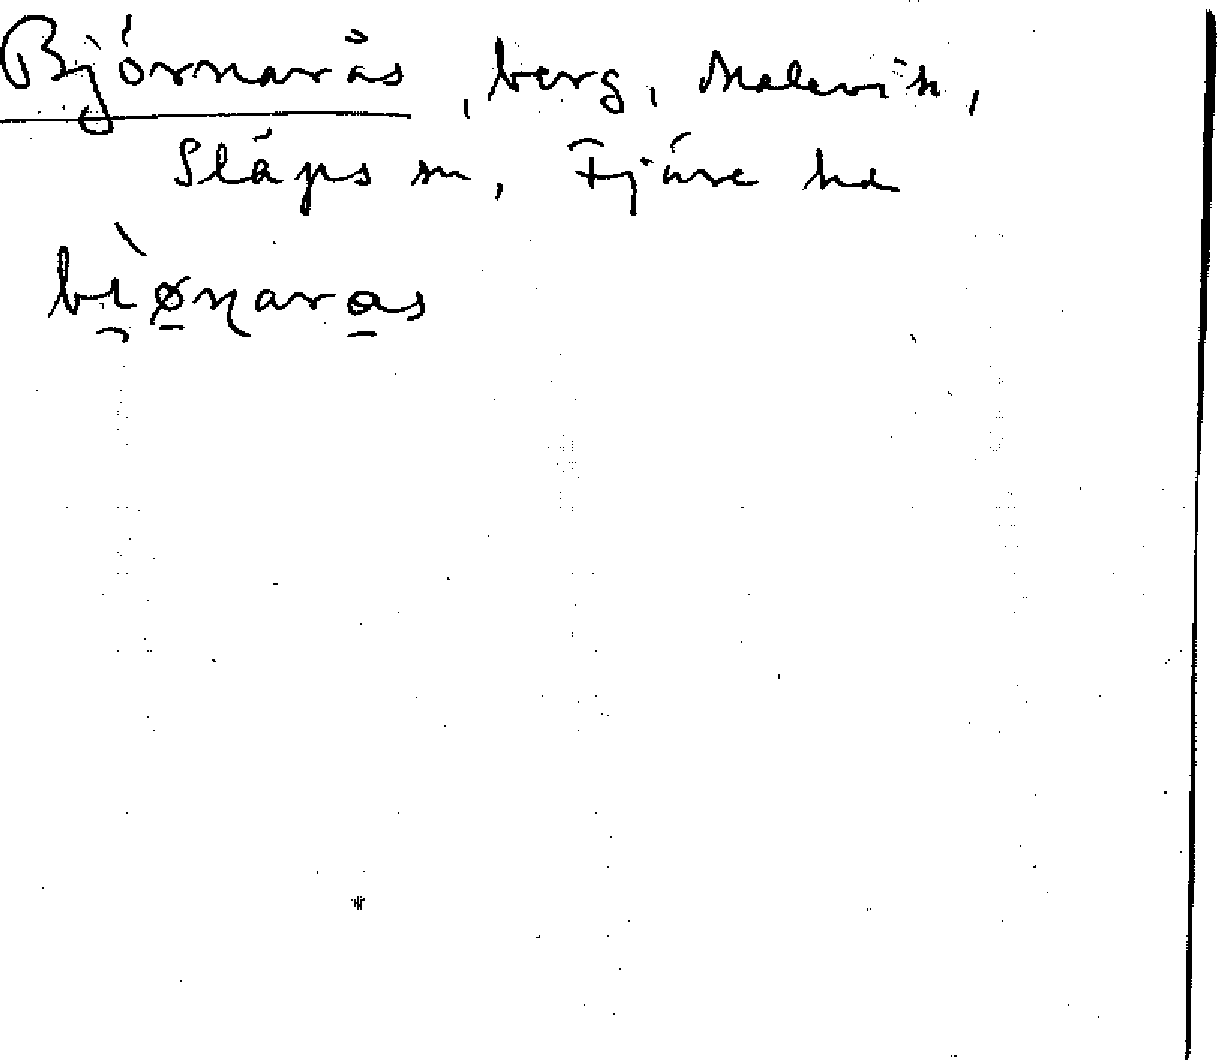 Björnarås, berg, Malevik,
Släps sn, Fjäre hd
bi̯ø̱ɳara̱s